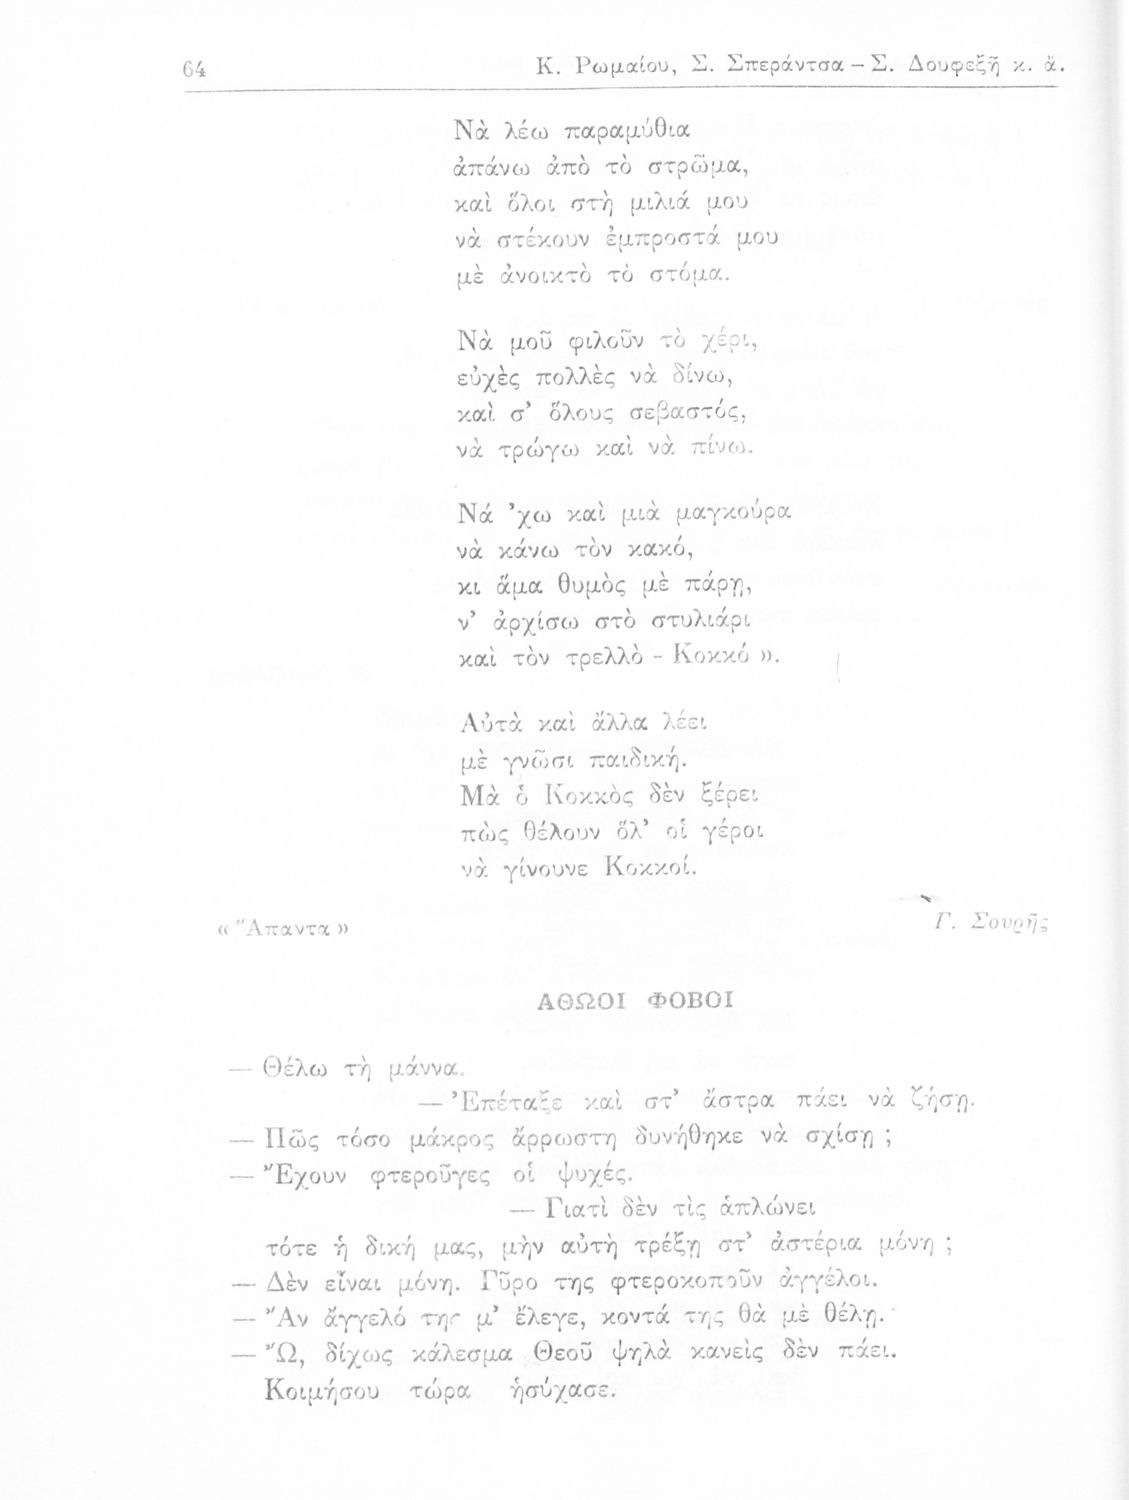 64
Κ. Ρωμαίου, Σ. Σπεράντσα – Σ. Δουφεξῆ κ. ἄ.
Νὰ λέω παραμύθια
ἀπάνω ἀπὸ τὸ στρῶμα,
καὶ ὅλοι στὴ μιλιά μου
νὰ στέκουν ἐμπροστά μου
μὲ ἀνοικτὸ τὸ στόμα.
Νὰ μοῦ φιλοῦν τὸ χέρι,
εὐχὲς πολλὲς νὰ δίνω,
καὶ σ’ ὅλους σεβαστός,
νὰ τρώγω καὶ νὰ πίνω.
Νά ’χω καὶ μιὰ μαγκούρα
νὰ κάνω τὸν κακό,
κι ἅμα θυμὸς μὲ πάρῃ,
ν’ ἀρχίσω στὸ στυλιάρι
καὶ τὸν τρελλὸ - Κοκκό ».
Αὐτὰ καὶ ἄλλα λέει
μὲ γνῶσι παιδική.
Μὰ ὁ Κοκκὸς δὲν ξέρει
πὼς θέλουν ὅλ’ οἱ γέροι
νὰ γίνουνε Κοκκοί.
« Ἅπαντα »
Γ. Σουρῆς
ΑΘΩΟΙ ΦΟΒΟΙ
— Θέλω τὴ μάννα.
— Ἐπέταξε καὶ στ’ ἄστρα πάει νὰ ζήσῃ.
— Πῶς τόσο μάκρος ἄρρωστη δυνήθηκε νὰ σχίσῃ ;
— Ἔχουν φτεροῦγες οἱ ψυχές.
— Γιατὶ δὲν τὶς ἁπλώνει
τότε ἡ δική μας, μὴν αὐτὴ τρέξῃ στ’ ἀστέρια μόνη ;
— Δὲν εἶναι μόνη. Γῦρο της φτεροκοποῦν ἀγγέλοι.
— Ἂν ἄγγελό της μ’ ἔλεγε, κοντά της θὰ μὲ θέλῃ.
— Ὤ, δίχως κάλεσμα Θεοῦ ψηλὰ κανεὶς δὲν πάει.
Κοιμήσου τώρα ἡσύχασε.